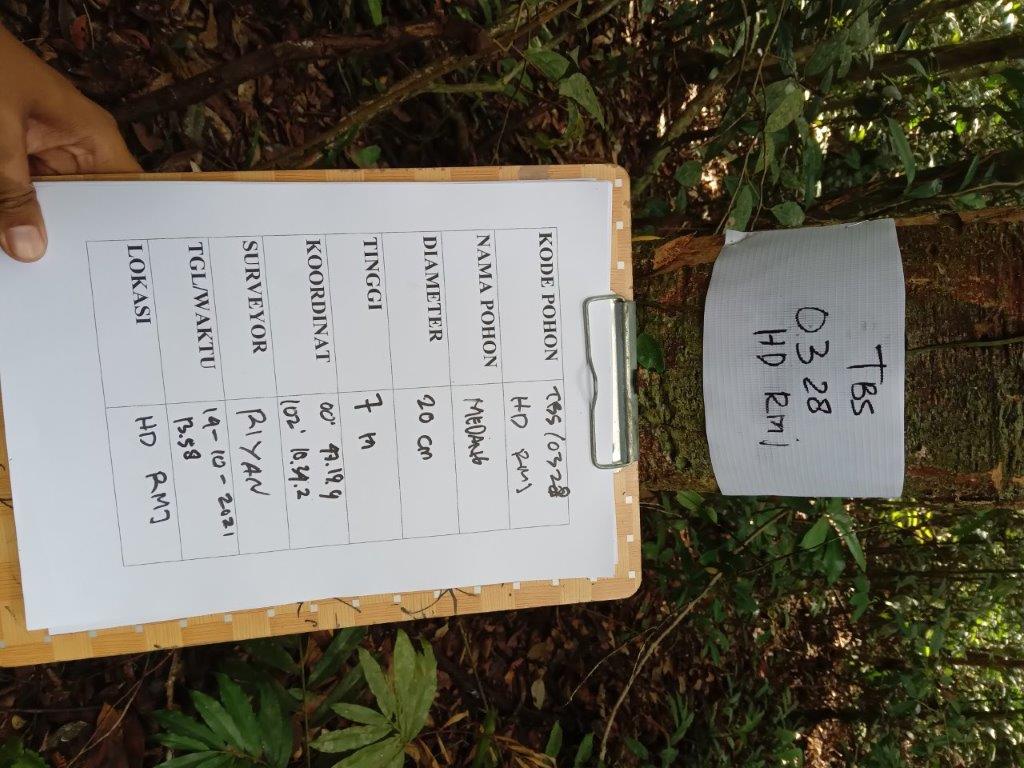 TBS
0328
HD RMJ
KODE POHON TBS/0328
HD RMJ
NAMA POHON MEDANG
DIAMETER 20 cm
TINGGI 7 m
KOORDINAT 00° 47.19.9
102° 10.39.2
SURVEYOR RIYAN
TGL/WAKTU 19-10-2021
13.58
LOKASI HD RMJ